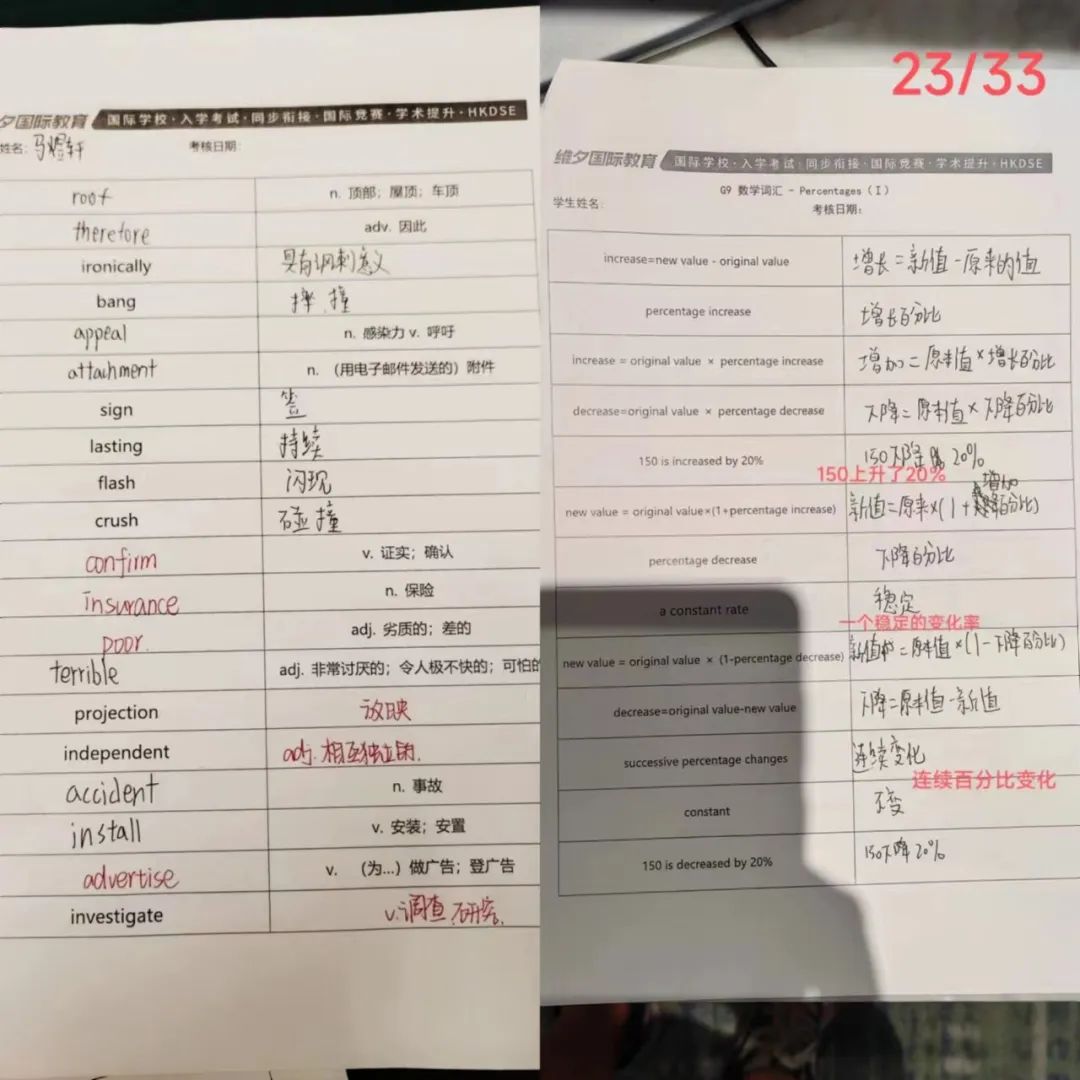 夕国际教育 国际学校·入学考试·同步衔接·国际竞赛·学术提升·HKDSE
姓名: 马煜轩 考核日期:
roof n. 顶部；屋顶；车顶
therefore adv. 因此
ironically 具有讽刺意义
bang 摔、撞
appeal n. 感染力 v. 呼吁
attachment n. （用电子邮件发送的）附件
sign 签
lasting 持续
flash 闪现
crush 碰撞
confirm v. 证实；确认
insurance n. 保险
poor. adj. 劣质的；差的
terrible adj. 非常讨厌的；令人极不快的；可怕的
projection 放映
independent adj. 相互独立的.
accident n. 事故
install v. 安装；安置
advertise v. （为...）做广告；登广告
investigate v.调查.研究.
23/33
维夕国际教育 国际学校·入学考试·同步衔接·国际竞赛·学术提升·HKDSE
G9 数学词汇 - Percentages（I）
学生姓名: 考核日期:
increase=new value - original value 增长=新值-原来的值
percentage increase 增长百分比
increase = original value × percentage increase 增加=原本值×增长百分比
decrease=original value × percentage decrease 下降=原本值×下降百分比
150 is increased by 20% 150下降 20%
150上升了20%
new value = original value×(1+percentage increase) 新值=原来×(1+增加百分比)
percentage decrease 下降百分比
a constant rate 稳定
一个稳定的变化率
new value = original value × (1-percentage decrease) 新值=原本值×(1-下降百分比)
decrease=original value-new value 下降=原本值-新值
successive percentage changes 连续变化
连续百分比变化
constant 不变
150 is decreased by 20% 150下降20%